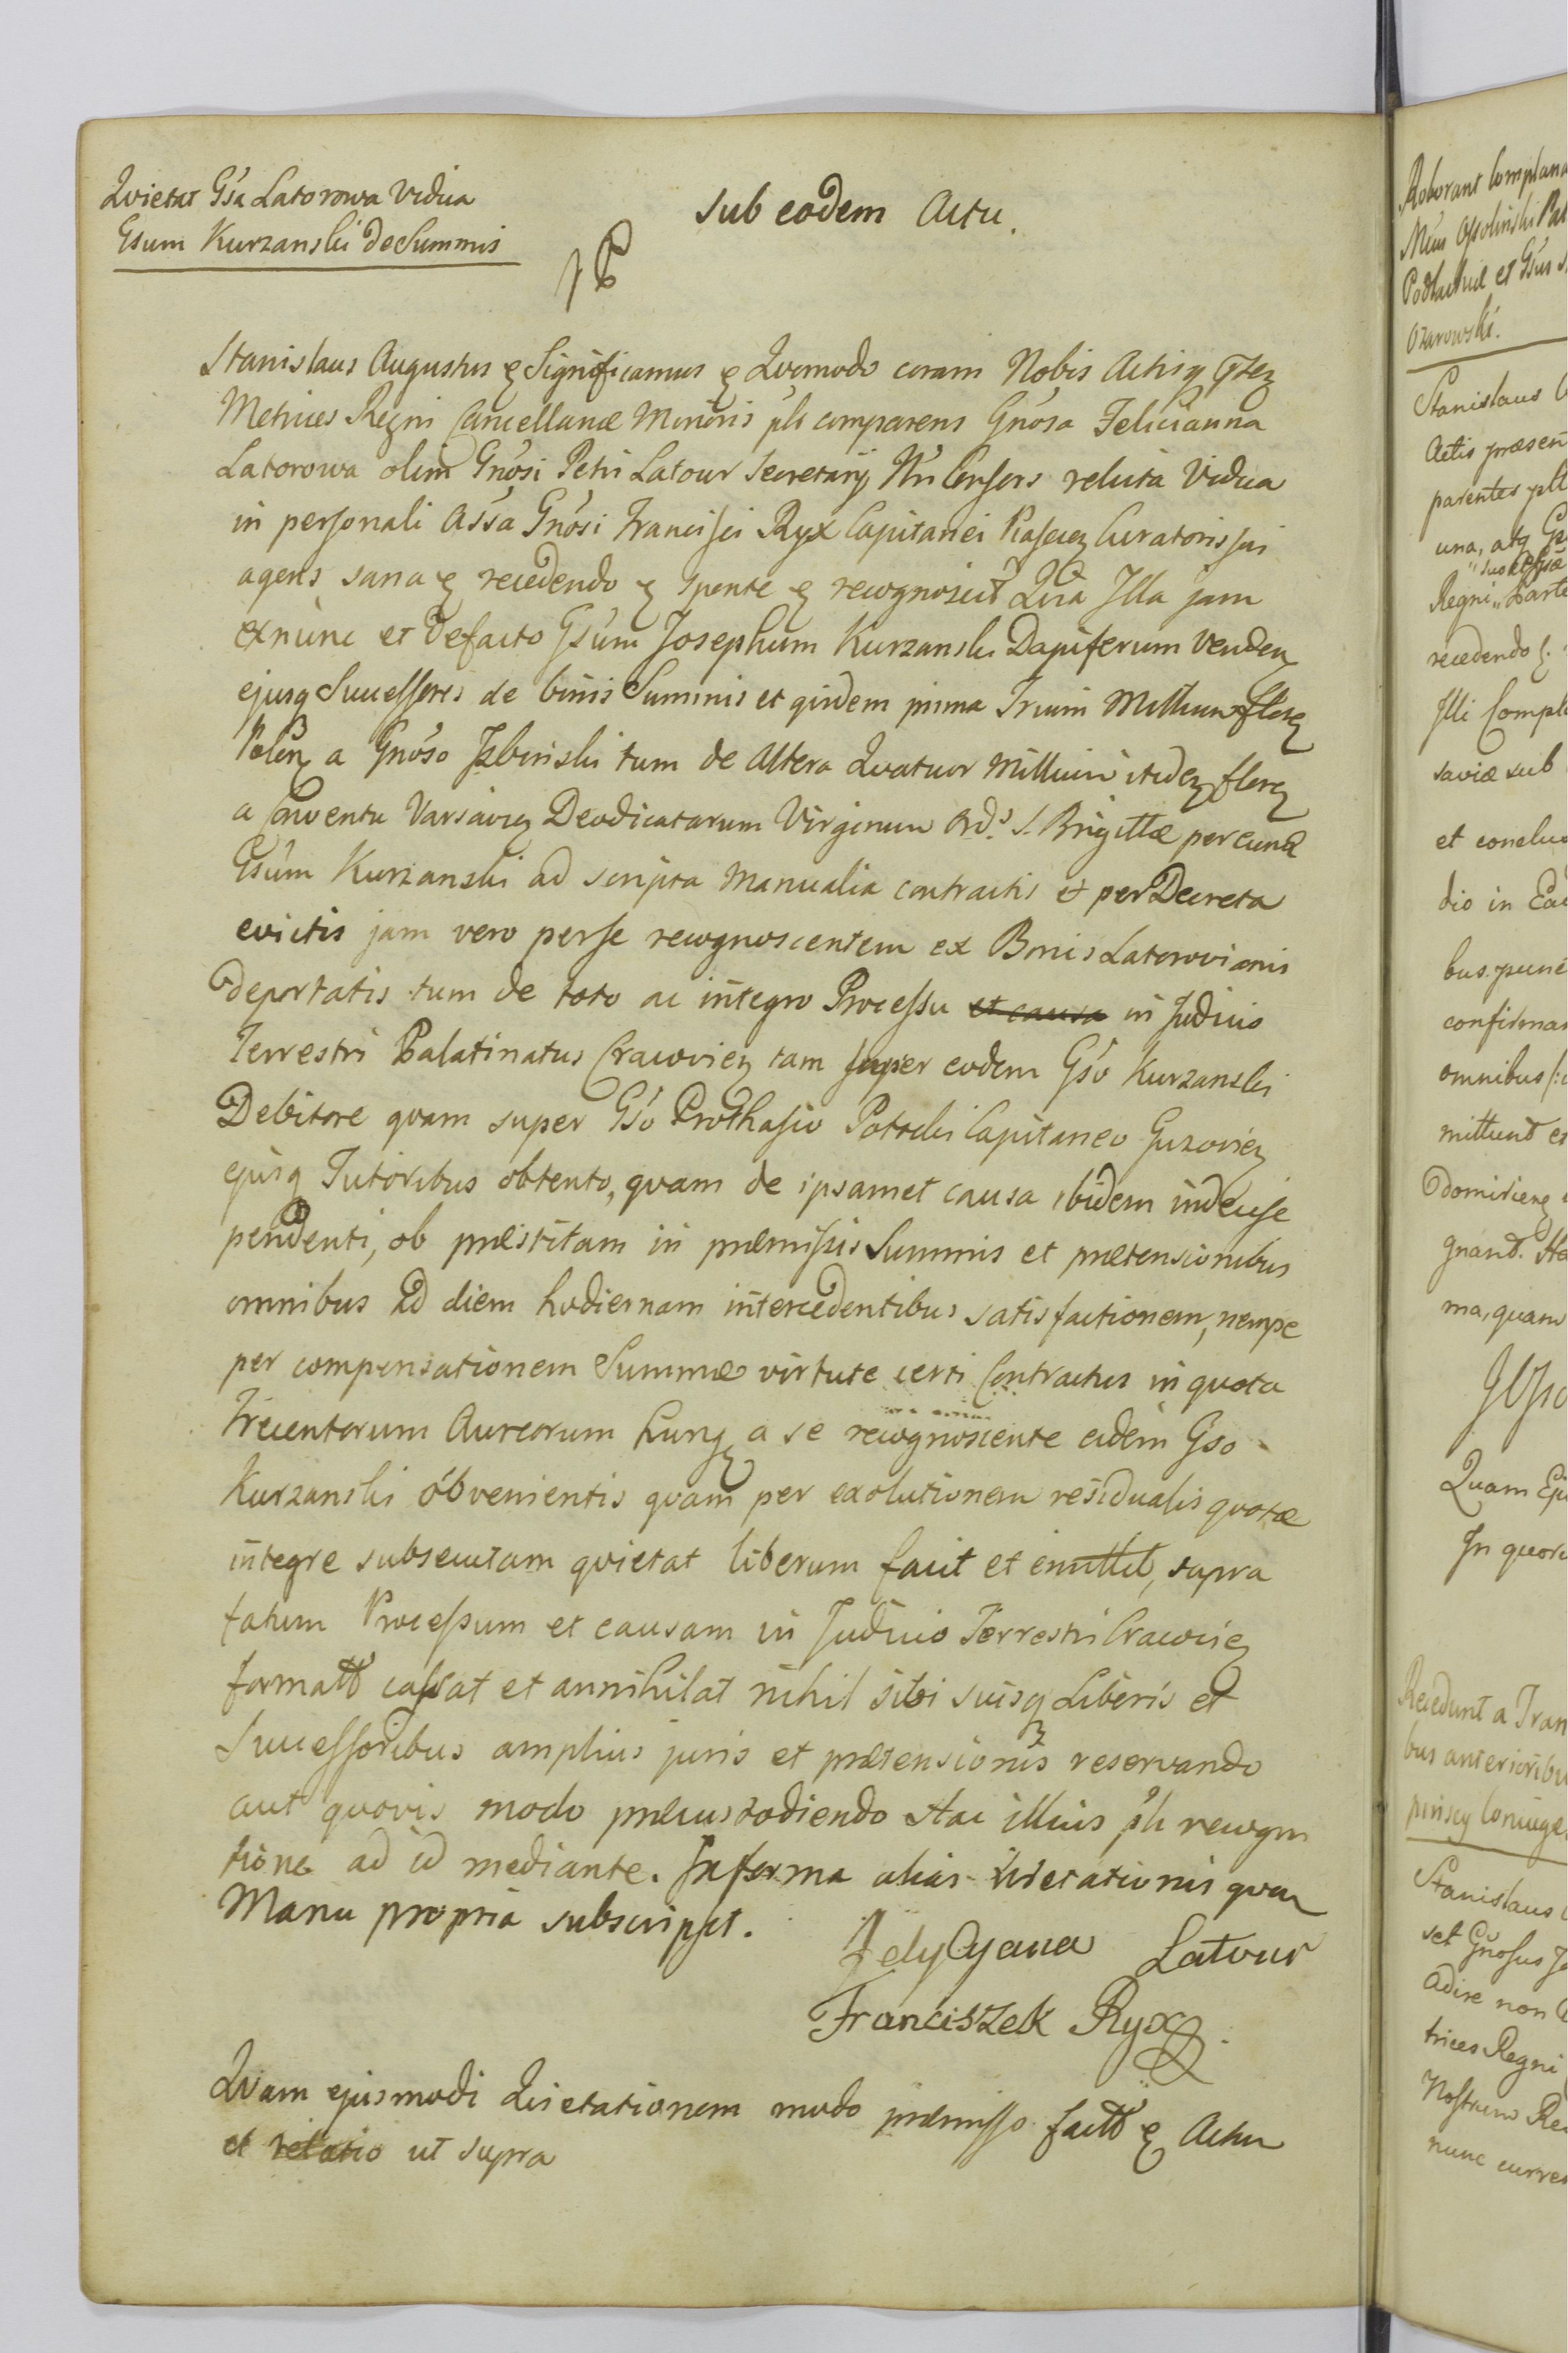 Qvietat Gsa Latorowa Vidua
Gsum Kurzanski de Summis
Sub eodem Actu.
Stanislaus Augustus & Significamus & Qvomodo coram Nobis Actisq
Metrices Regni Cancellariæ Minoris plr comparens Gnosa Felicianna
Latorowa olim Gnosi Petri Latour Secretarij Nri Consors relicta Vidua
in personali Assa Gnosi Francisci Ryx Capitanei Piasecz Curatoris sui
agens sana & recedendo & sponte & recognovit Quia Illa jam
ex nunc et de facto Gsum Josephum Kurzanski Dapiferum Venden
ejusq Successores de binis Summis et qvidem prima Trium Millium flor
Polon a Gnoso Izbinski tum de Altera Qvatuor Millium itidem flor
a Conventu Varsavien Deodicatarum Virginum Ord.s S. Brigittæ per eund
Gsum Kurzanski ad scripta Manualia contractis et per Decreta
evictis jam vero per se recognoscentem ex Bonis Latorovianis
deportatis tum de toto ac integro Processu et causa in Judicio
Terrestri Palatinatus Cracovien tam super eodem Gso Kurzanski
Debitore qvam super Gso Prothasio Potocki Capitaneo Guzovien
ejusq Tutoribus obtento, qvam de ipsamet causa ibidem indecise
pendenti, ob præstitam in præmissis Summis et prætensionibus
omnibus ad diem hodiernam intercedentibus satisfactionem, nempe
per compensationem Summæ virtute certi Contractus in quota
Trecentorum Aureorum hung a se recognoscente eidem Gso
Kurzanski obvenientis qvam per exolutionem residualis quotæ
integre subsecutam qvietat liberum facit et emittit, supra
fatum Processum et causam in Judicio Terrestri Cracovien
formatt cassat et annihilat nihil sibi suisq Liberis et
Successoribus amplius juris et prætensionis reservando
aut qvovis modo præcustodiendo Hac illius plr recogni
tione ad id mediante. In forma alias Qvietationis qvam
Manu propria subscripsit.
Felycyana Latour
Franciszek Ryx
Qvam ejusmodi Qvietationem modo præmisso factt & Actu
et relatio ut supra
Stanislaus
Actis præsen
parentes
una, atq
Regni
recedendo
Illi Compl
saviæ sub
et conclu
dio in
bus
confirma
omnibus
mittunt
gnand.
ma, quam
Quam
In quor
Recedunt a Tran
bus anterioribu
Stanislaus
set Gnosus
Adire non
trices Regni
Nostrum
nunc curre